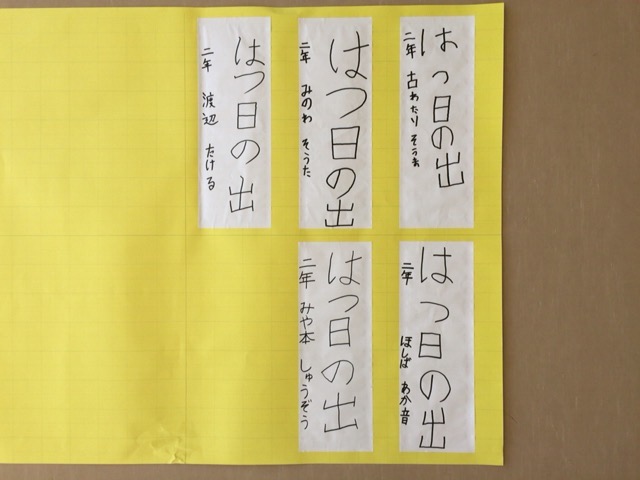 はつ日の出
二年 古わたり そう真
はつ日の出
二年 みのわ そうた
はつ日の出
二年 渡辺 たける
はつ日の出
二年 ほしば あか音
はつ日の出
二年 みや本 しゅうぞう